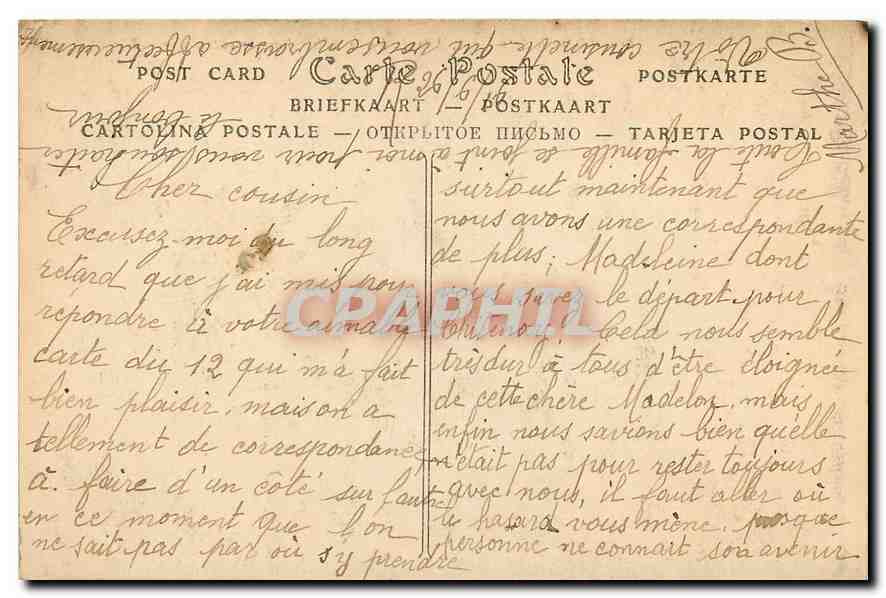 POST CARD Carte Postale POSTKARTE
BRIEFKAART - POSTKAART
CARTOLINA POSTALE — ОТКРЫТОЕ ПИСЬМО — TARJETA POSTAL
Cher cousin
Excusez-moi du long
retard que j'ai mis pour
répondre à votre aimable
carte du 12 qui m'a fait
bien plaisir, mais on a
tellement de correspondance
à faire d'un côté sur l'autre
en ce moment que l'on
ne sait pas par où s'y prendre
surtout maintenant que
nous avons une correspondante
de plus, Madeleine dont
vous savez le départ pour
Cela nous semble
très dur à tous d'être éloignée
de cette chère Madelon, mais
enfin nous savions bien quelle
n'était pas pour rester toujours
avec nous, il faut aller où
le hasard vous mène, puisque
personne ne connait son avenir
Toute la famille se joint à moi pour vous souhaiter
le bonjour
Votre cousinette qui vous embrasse affectueusement
Marthe B.
CPAPHIL